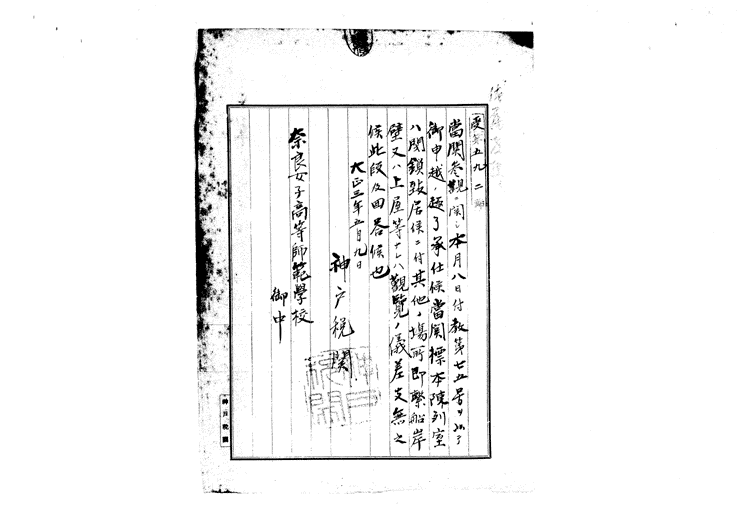 受第五九二號
當関参觀ニ関シ本月八日付教第七五号ヲ以テ
御申越ノ趣了承仕候當関標本陳列室
ハ閉鎖致居候ニ付其他ノ場所即繫船岸
壁又ハ上屋等ナレハ觀覽ノ儀差支無之
候此段及回答候也
大正三年五月九日
神戸税関
奈良女子高等師範學校
御中
神戸税関